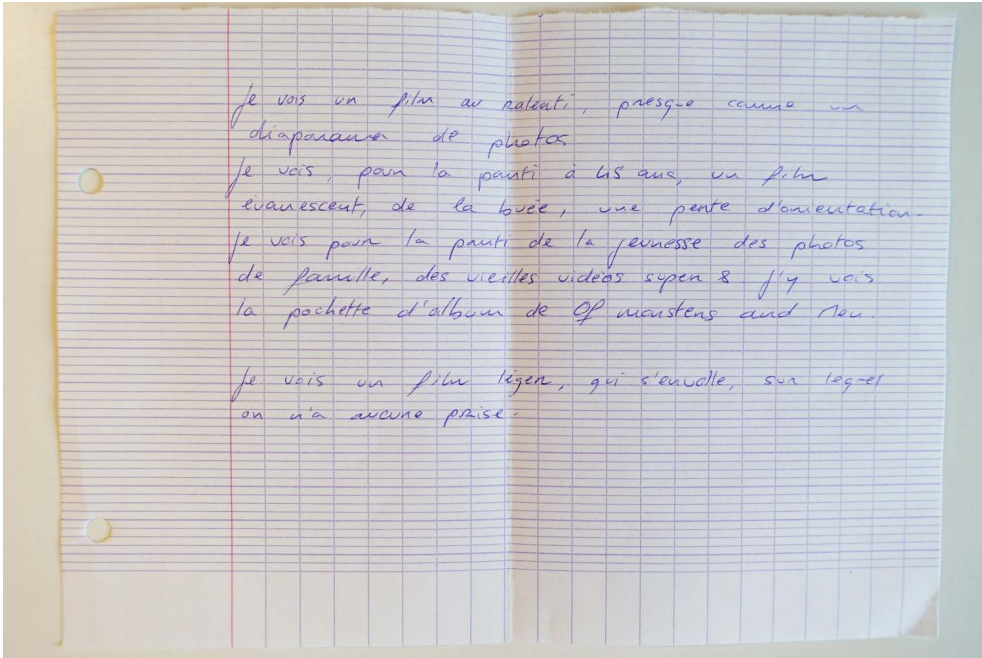 Je vois un film au ralenti, presque comme un
diaporama de photos
Je vois, pour la parti à 45 ans, un film
évanescent, de la buée, une perte d'orientation.
Je vois pour la parti de la jeunesse des photos
de famille, des vieilles vidéos super 8. J'y vois
la pochette d'album de Of monsters and Men.
Je vois un film léger, qui s'envolle, sur lequel
on n'a aucune prise.